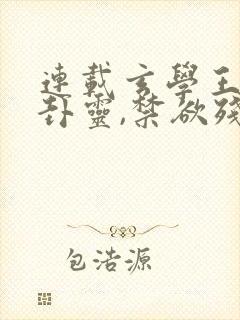 連載玄學王
卦靈,禁欲殘
包浩源